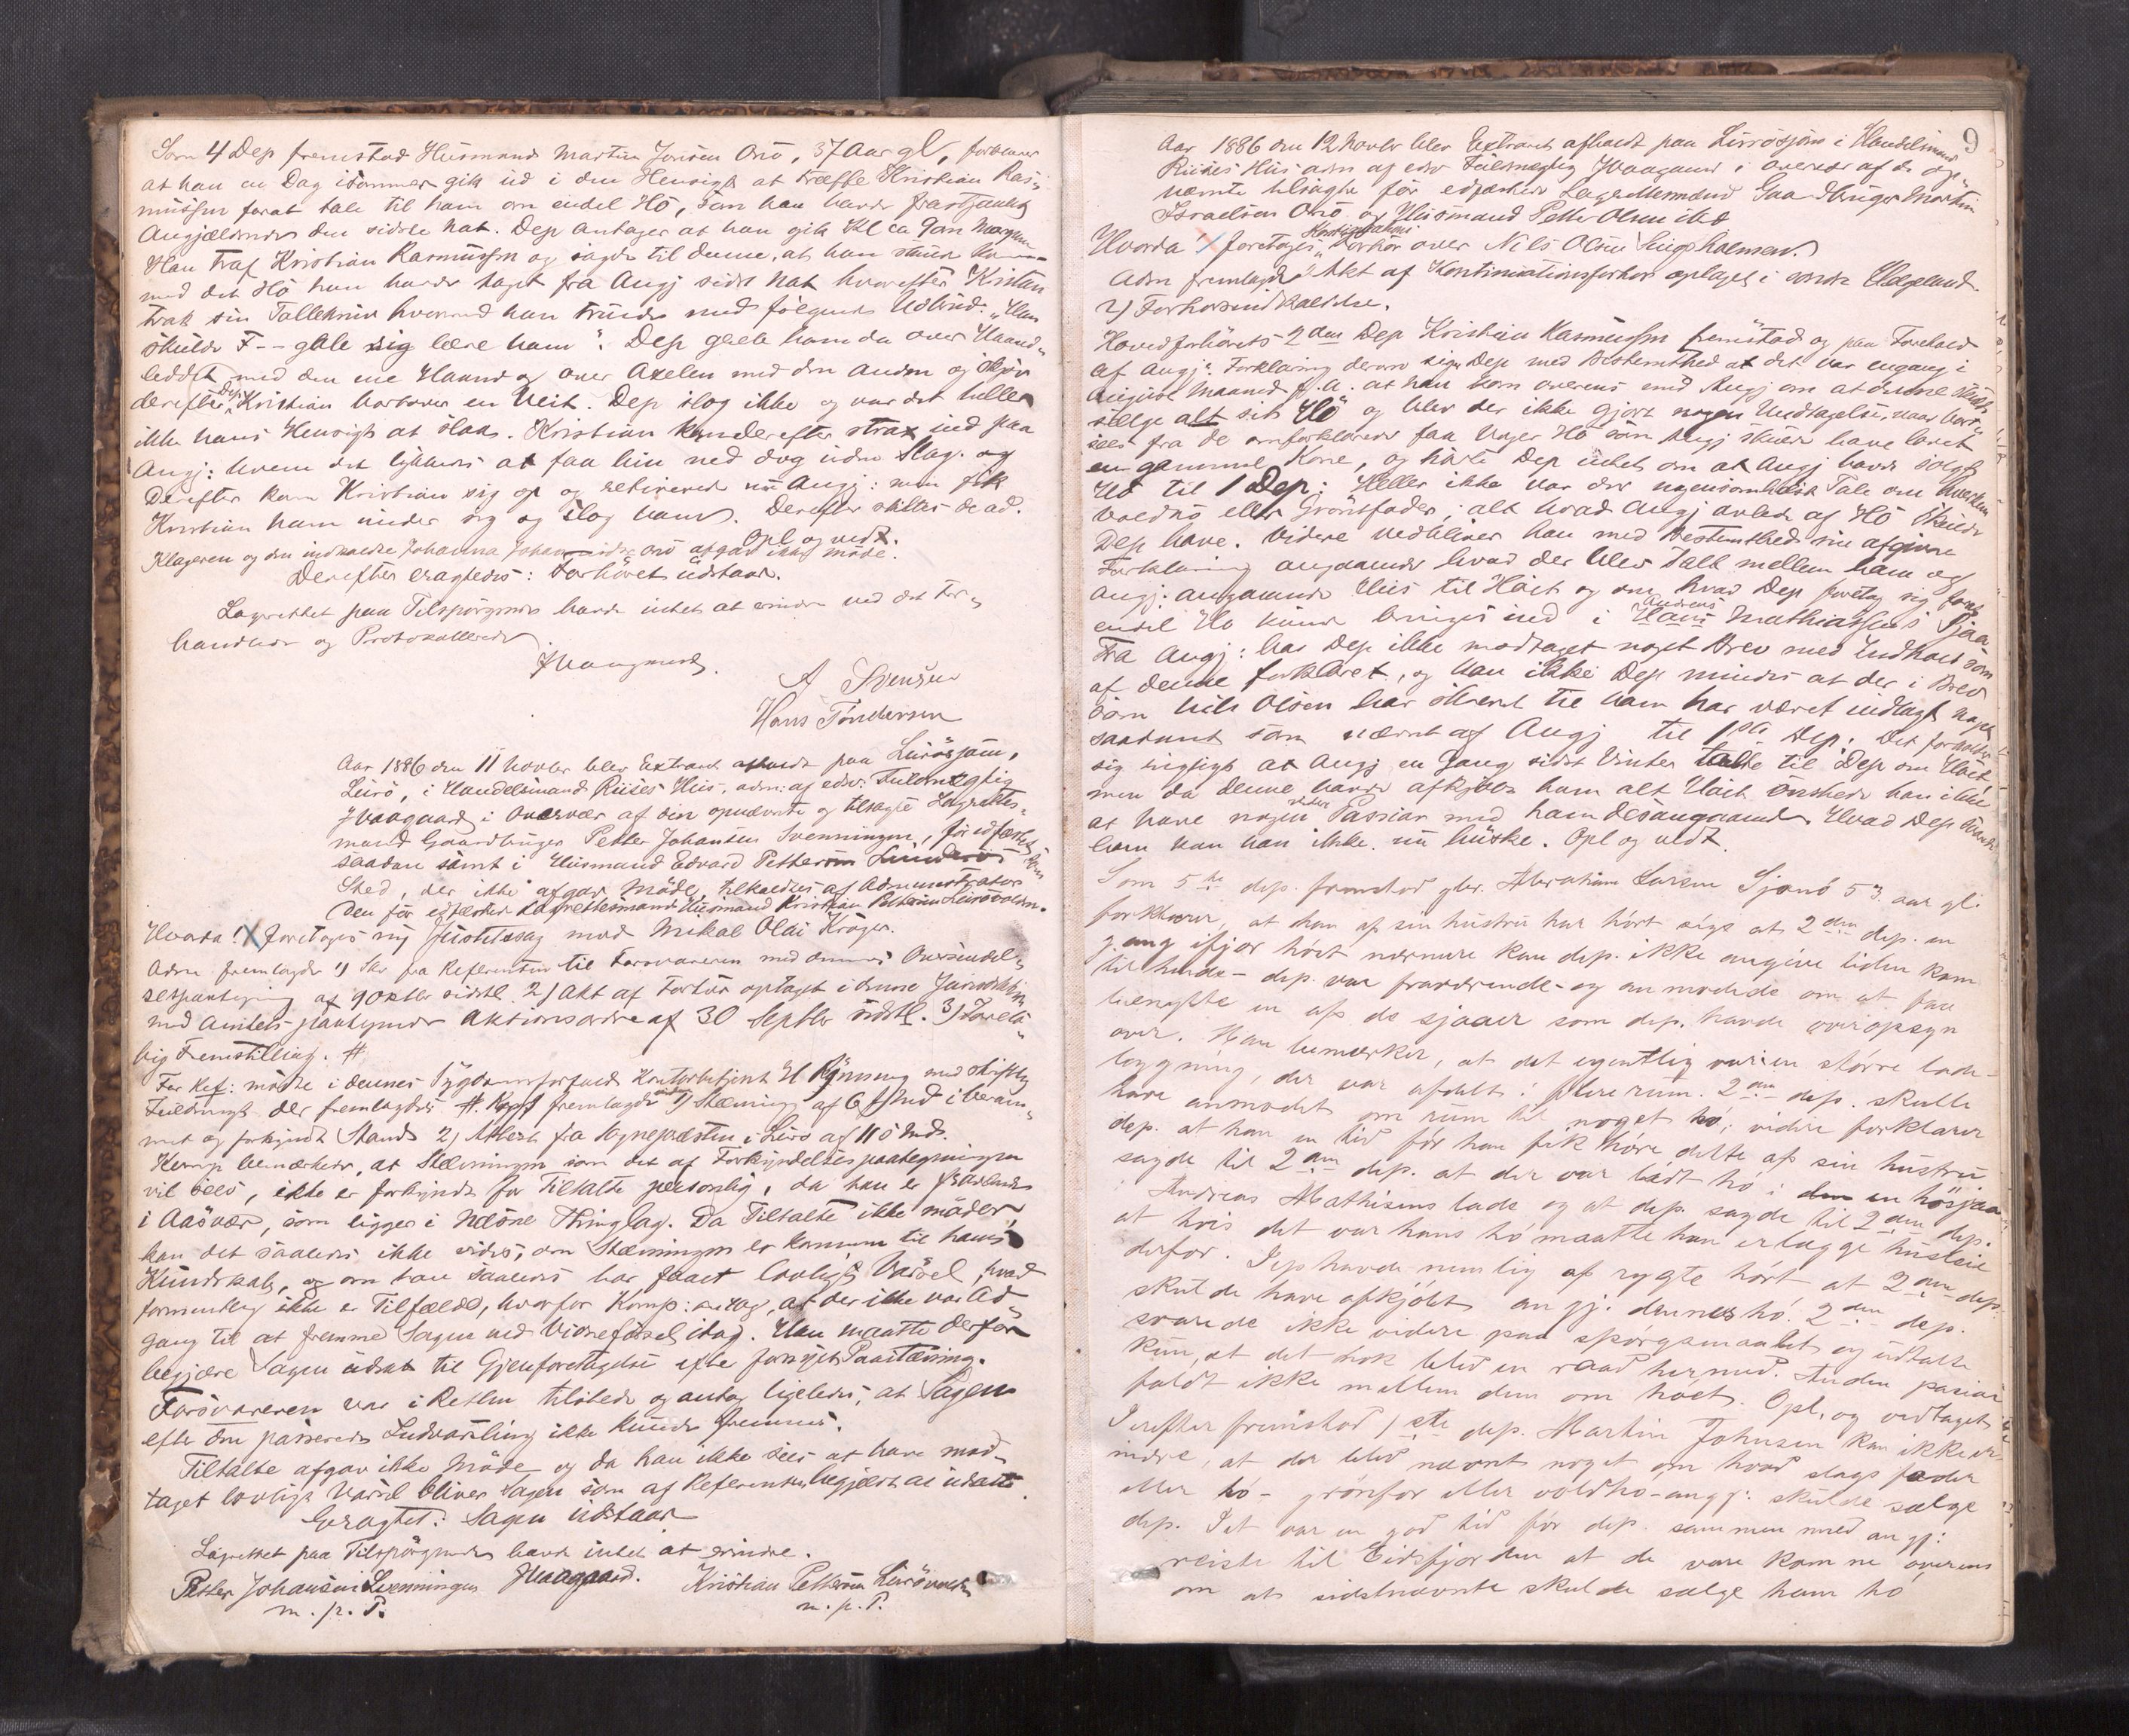 Som 4 Dep fremstod Husmand Martin Jonsen Onö, 37 Aar gl, forklarer
at han en Dag isommer gik ud i den Hensigt at træffe Kristian Ras-
mussen forat tale til ham om endel Hö, som han havde frastjaalet
Angjældende den sidste Nat. Dep antager at han gik Kl ca 9 om Morgen
Han traf Kristian Rasmussen og sagde til denne, at han skulde komme
med det Hö han havde taget fra Angj sidst Nat hvorefter Kristian
trak sin Tollekniv hvormed han truede med følgende Udbrud: "Han
skulde F-- gale sig lære ham". Dep greb ham da over Haand-
leddet med den ene Haand og over Axelen med den anden og skjöv
derefter Dep Kristian bortover en Veit. Dep slog ikke og var det heller
ikke hans Hensigt at slaas. Kristian kom derefter strax ind paa
Angj: hvem det lykkedes at faa him ned dog uden Slag. og
Derefter kom Kristian sig op og retirerede nu Angj: men fik
Kristian ham under sig og slog ham. Derefter skiltes de ad.
Opl og vedt.
Klageren og den indkaldte Johanna Onö afgav ikke möde.
Derefter eragtedes: Forhöret udstaar.
Lagrettet paa Tilspörgende havde intet at erindre ved det For-
handlede og Protokollerede
JHaagaard.
A Svensen
Hans Tøndersen
Aar 1886 den 11 Novbr blev Extraret afholdt paa Lurösjøen,
Lurö, i Handelsmand Riises Hus, adm: af edsv: Fuldmægtig
JHaagaard i Overvær af den opnævnte og tilsagte Lagrettes-
mand Gaardbruger Petter Johansen Svenningen, för edfæstet
saadan samt i Husmand Edvard Pettersen Sunderös
Sted, der ikke afgav Möde, tilkaldtes af Administrator
den för edfæstede Lagrettesmand Husmand Kristian Pettersen Luröveden.
Hvorda! X foretoges ny Justitssag mod Mikal Olai Kröger.
Adm fremlagde 1) Skr fra Referenten til Forsvareren med dennes Oversendel-
sespaategning af 9 Oktbr sidstl. 2) Akt af Forhör optaget i denne Jurisdiktion
med Amtets paategnede Aktionsordre af 30 Septbr sidstl. 3) Forelö-
big Fremstilling. #
For Ref: mödte i dennes Sygdomsforfald Kontorbetjent H Rynning med skriftlig
Fuldmagt der fremlagdes #. Komp fremlagde 1) Stævning af 6 ds med i beram-
met og forkyndt Stand 2) Attest fra Sognepræsten i Lurö af 11 ds.
Komp bemærkede, at Stævningen som det af Forkyndelsespaategningen
vil sees, ikke er forkyndt for Tiltalte personlig, da han er
i Aasvær, som ligger i Næsne Thinglag. Da Tiltalte ikke möder,
kan det saaledes ikke vides, om Stævningen er kommen til hans
Kundskab, og om han saaledes har faaet lovligt Varsel, hvad
formentlig ikke er Tilfældet, hvorfor Komp: antog, at der ikke var Ad-
gang til at fremme Sagen ved Vidneførsel idag. Han maatte derfor
begjære Sagen udsat til Gjenforetagelse efter fornyet Paastævning.
Forsvareren var i Retten tilstede og antog ligeledes, at Sagen
efter den passerede Indvarsling ikke kunde fremmes.
Tiltalte afgav ikke Möde og da han ikke sees at have mod-
taget lovligt Varsel bliver Sagen som af Referenten begjært at udsætte.
Eragtet: Sagen udstaar
Lagrettet paa Tilspörgende havde intet at erindre.
Petter Johansen Svenningen JHaagaard. Kristian Pettersen Luröveden
m. p. P. m. p. P.
9
Aar 1886 den 12 Novbr blev Extraret afholdt paa Lurösjøen i Handelsmand
Riises Hus adm af edsv Fuldmægtig JHaagaard i overvær af de op-
nævnte tilsagte för edfæstede Lagrettesmænd Gaardbruger Martin
Israelsen Onö og Husmand Petter Olsen ibd
Hvorda X foretoges Kontinuations Forhör over Nils Olsen Lingsholmen.
Adm fremlagde 1) Akt af Kontinuationsforhör optaget i søndre Helgeland.
2) Forhörsindkaldelse.
Hovedforhörets 2den Dep Kristian Rasmussen fremstod og paa Forehold
af Angj: Forklaring derom siger Dep med Bestemthed at det var engang i
August Maaned f.A. at han kom overens med Angj om at denne skulde
sælge alt sit Hö og blev der ikke gjort nogen Undtagelse, naar bort-
sees fra de omforklarede faa Voger Hö som Angj skulde have lovet
en gammel Kone, og hørte Dep intet om at Angj havde solgt
Hö til 1 Dep: Heller ikke var der nogensomhelst Tale om hverken
Voldhö eller Grönsfoder; alt hvad Angj avlede af Hö skulde
Dep have. Videre vedbliver han med Bestemthed sin afgivne
Forklaring angaaende hvad der blev talt mellem ham og
Angj: angaaende Hus til Höet og om hvad Dep foretog sig forat
endel Hö kunde bringes ind i Andreas Hans Mathiassens Sjaa
Fra Angj: har Dep ikke modtaget noget Brev med Indhold som
af denne forklaret, og kan ikke Dep mindes at der i Brev
som Nils Olsen har skrevet til ham har været indlagt noget
saadant som nævnt af Angj til 1ste Dep. Det forholder
sig rigtigt at Angj en Gang sidst Vinter talte til Dep om Höet
men da denne havde afkjöbt ham alt Höet önskede han ikke
at have nogen videre Passiar med ham desangaaende. Hvad Dep svarede
ham kan han ikke nu huske. Opl og vedt.
Som 5te dep. fremstod gbr. Abraham Larsen Sjonö 53 aar gl.
forklarer, at han af sin hustru har hört sige at 2den dep. en
gang ifjor höst nærmere kan dep. ikke angive tiden kom
til hende - dep. var fraværende - og anmodede om at faa
benytte en af de sjaaer som dep. havde overopsyn
over. Han bemærker, at det egentlig var en större lade-
bygning, der var afdelt i flere rum. 2den dep. skulle
have anmodet om rum til noget hö; videre forklarer
dep. at han en tid för han fik höre dette af sin hustru
sagde til 2den dep. at der var lådt hö i den en hösjaa
Andreas Mathisens lade og at dep. sagde til 2den dep.
at hvis det var hans hö maatte han erlægge husleie
derfor. Dep havde nemlig af rygte hört at 2den dep.
skulde have afkjöbt angj. dennes hö. 2den dep.
svarede ikke videre paa spörgsmaalet og udtalte
kun, at det nok blev en raad hermed. Anden pasiar
faldt ikke mellem dem om höet. Opl. og vedtaget
Derefter fremstod 1ste dep. Martin Johnsen kan ikke er-
indre, at der blev nævnt noget om hvad slags foder
eller hö- grönfor eller voldhö - angj: skulde sælge
dep. Det var en god tid för dep. sammen med angj:
reiste til Eidsfjorden at de vare komne overens
om at sidstnævnte skulde sælge ham hö